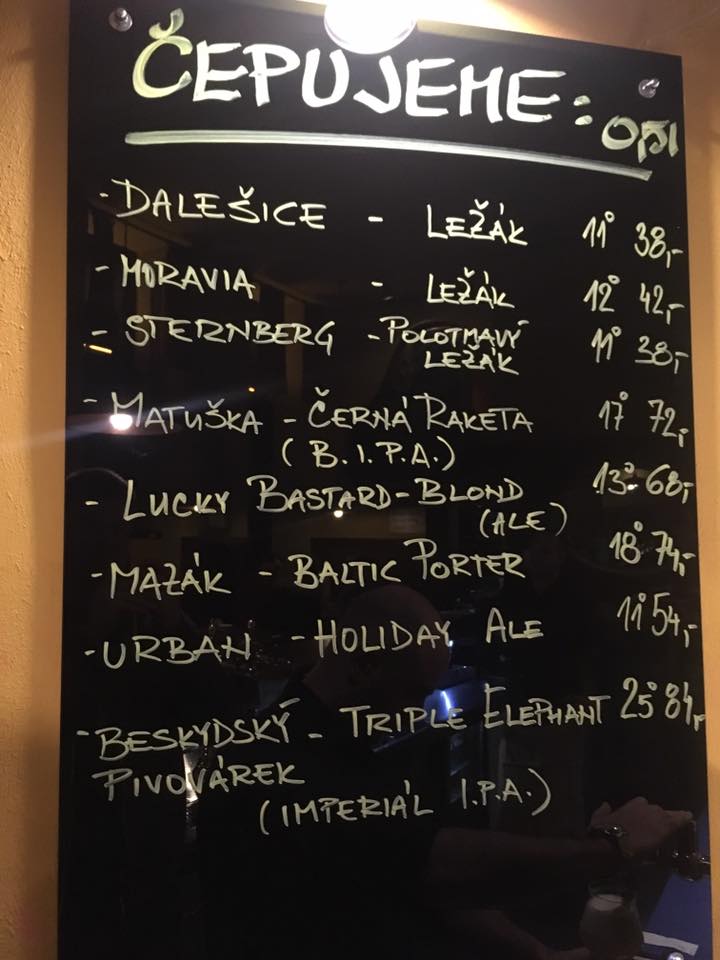 ČEPUJEME: 0,5l
- DALEŠICE - LEŽÁK 11° 38,-
- MORAVIA - LEŽÁK 12° 42,-
- STERNBERG - POLOTMAVÝ 11° 38,-
LEŽÁK
- MATUŠKA - ČERNÁ RAKETA 17° 72,-
(B.I.P.A.)
- LUCKY BASTARD - BLOND 13° 68,-
(ALE)
- MAZÁK - BALTIC PORTER 18° 74,-
- URBAN - HOLIDAY ALE 11° 54,-
- BESKYDSKÝ - TRIPLE ELEPHANT 25° 84,-
PIVOVÁREK
(IMPERIÁL I.P.A.)